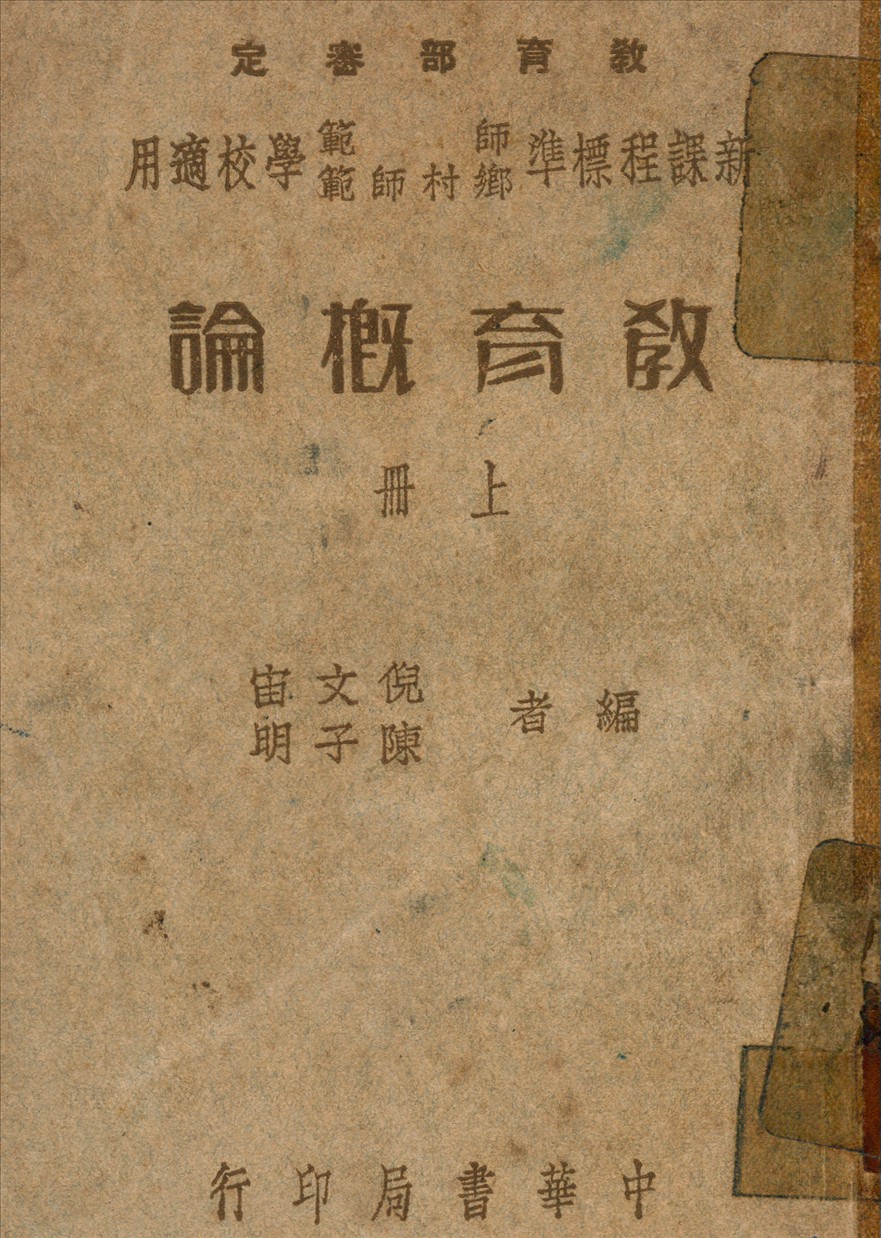 教育部審定
新課程標準師範鄉村師範學校適用
教育概論
上冊
編者 倪文宙 陳子明
中華書局印行